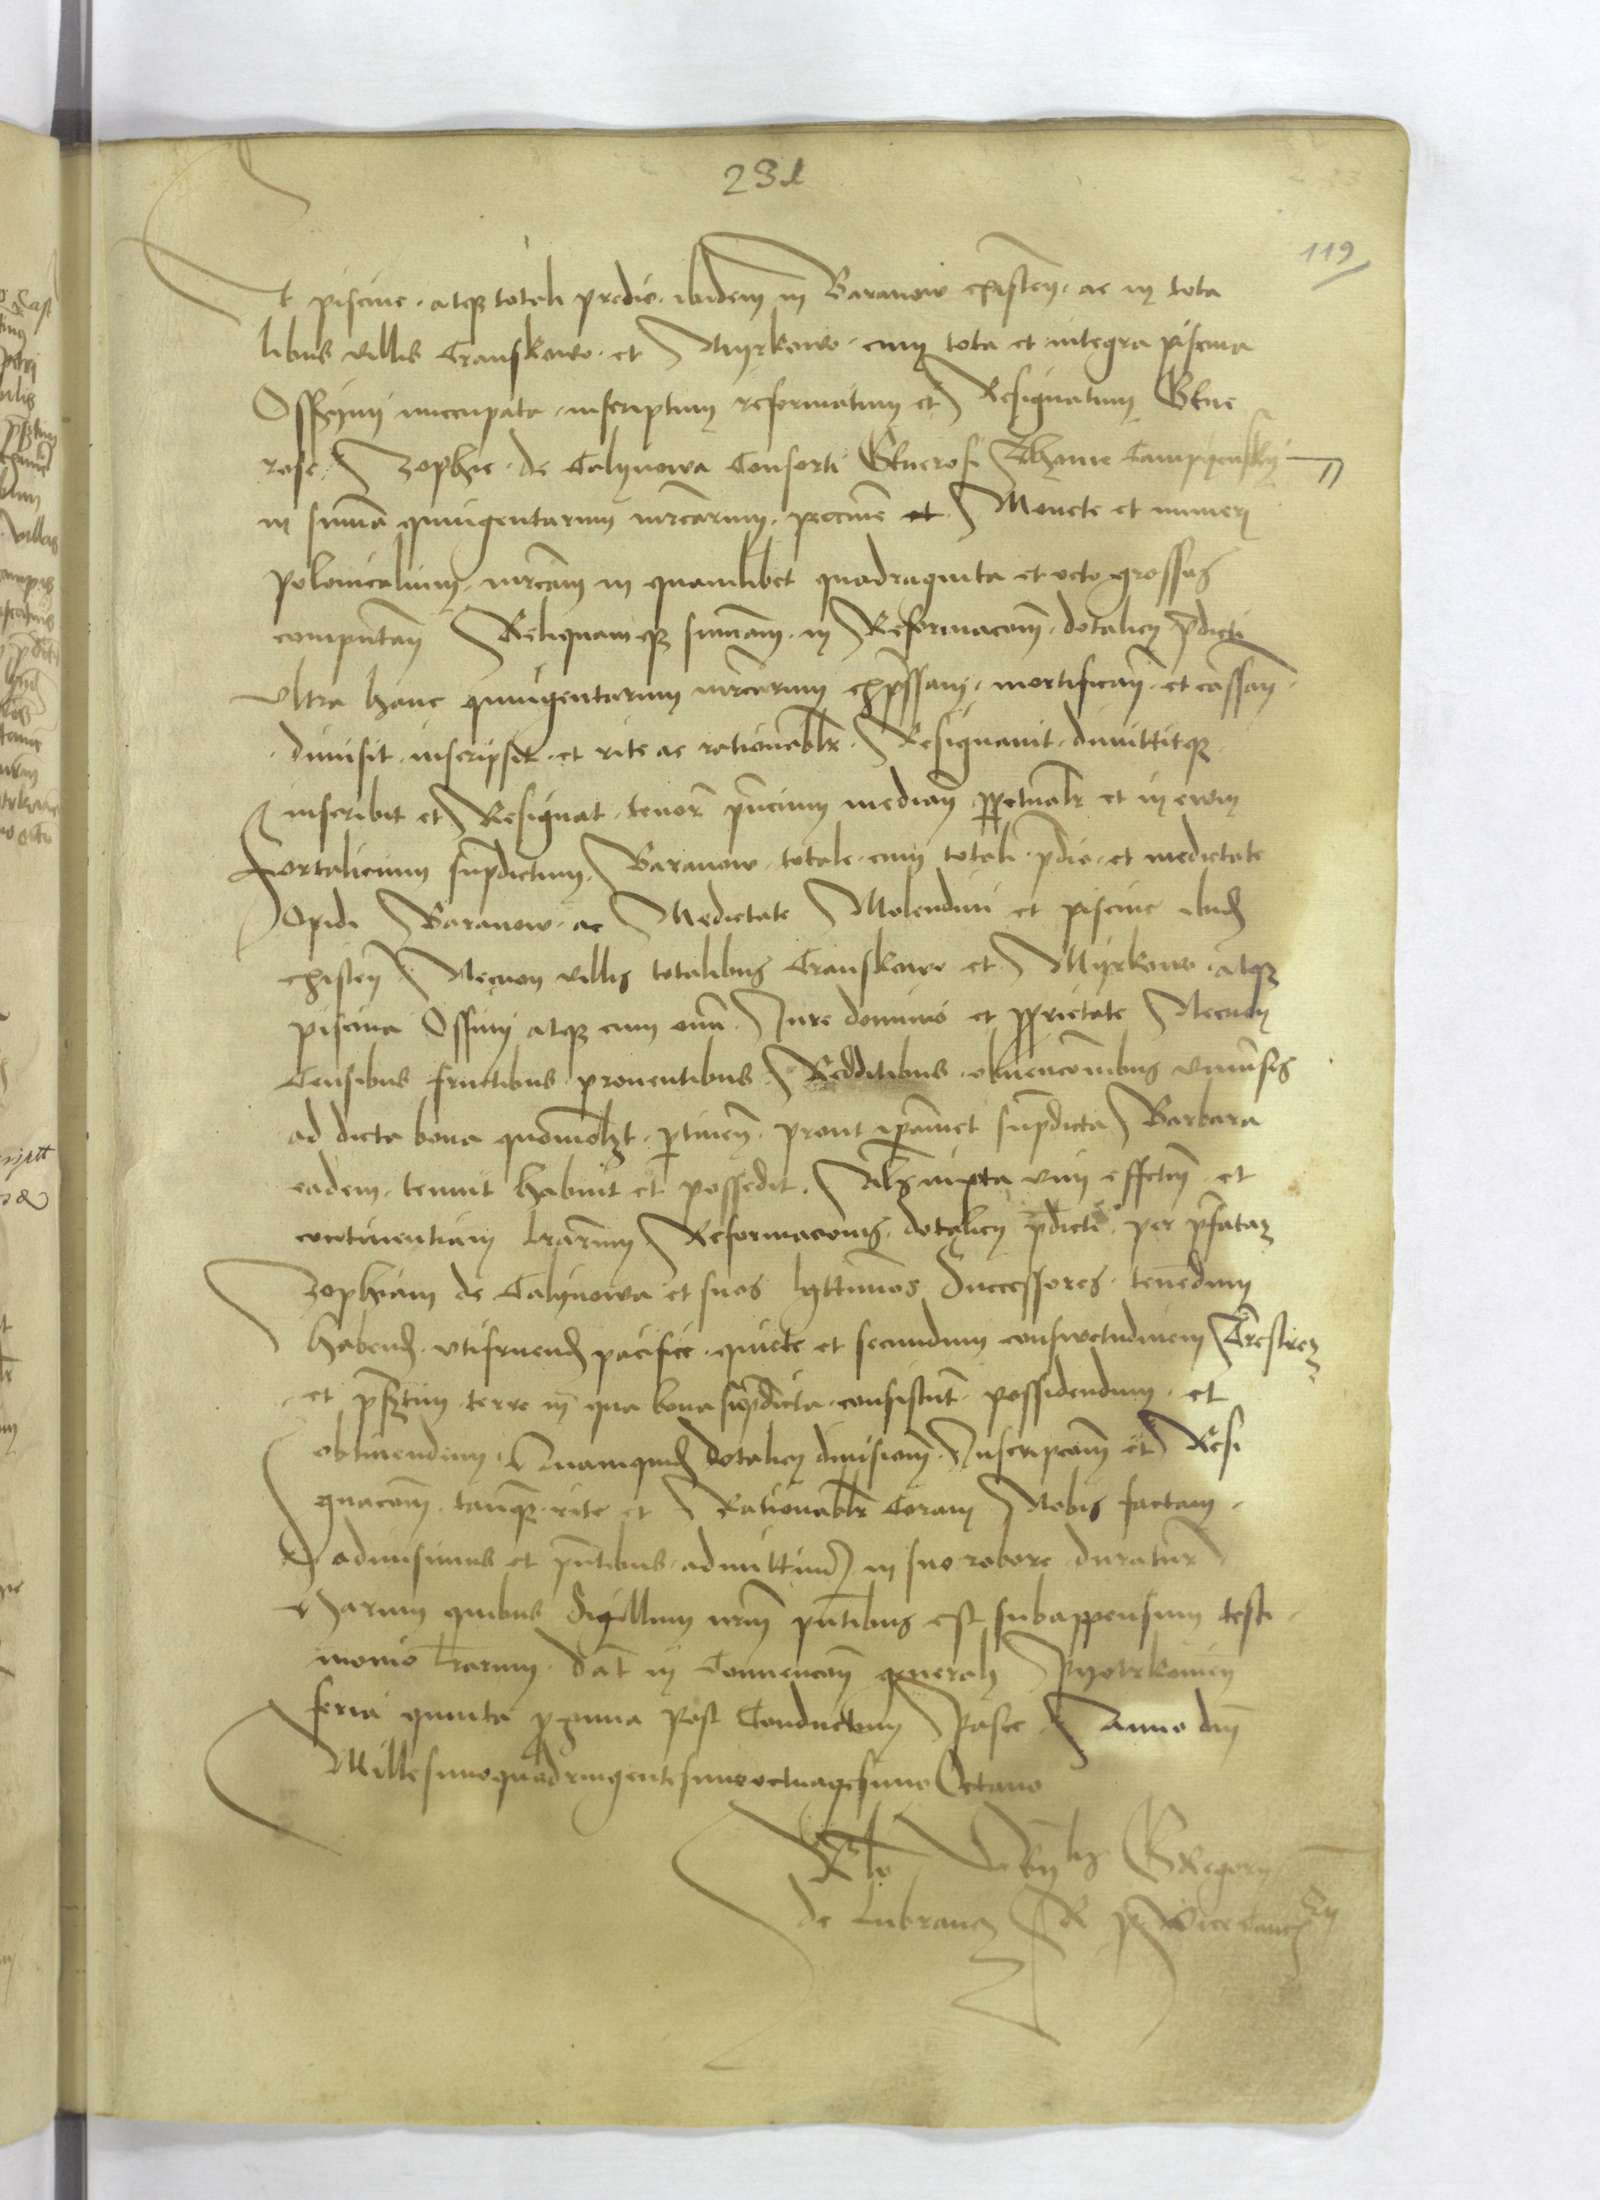 231
119
Et piscine atque totali predio ibidem in Baranow existen ac in tota
libus villis Cranskowo et Myrkowo cum tota et integra piscina
Ossyny nuccupata inscriptum reformatum et Resignatum Gene
rose Zophie de Calynowa Consorti Generosi Thome
in summa quingentarum mrcarum pecunie et Monete et numeri
polonicalium mrcam in quamlibet quadraginta et octo grossos
computan Reliquamque summam in Reformacom dotalicy predicti
ultra hanc quingentarum mrcarum expressam mortifican et cassan
dimisit inscripsit et rite ac rationabilr Resignavit dimittitque
inscribit et Resignat tenore presencium median perpetualr et in ewm
Fortalicium supradictum Baranow totale cum totali predio et medietate
Opidi Baranow ac Medietate Molendini et piscine ibid
existen Necnon villis totalibus Cranskowo et Myrkowo atque
piscina Ossiny atque cum omni Jure dominio et proprietate Necnon
Censibus fructibus proventibus Redditibus obvencionibus universis
ad dicta bona quomodolibet pertinen prout ipsamet supradicta Barbara
eadem tenuit habuit et possedit Aliis iuxta vim effectum et
continentiam lrarum Reformacionis dotalicy predicti per prefatam
Zophiam de Calynowa et suos legittimos Successores tenendum
habend utifruend pacifice quiete et secundum conswetudinem Terrestrem
et presertim terre in qua bona supradicta consistunt possidendum et
obtinendum Quamquid dotalicy dimissionem Inscripcom et Resi
gnacom tanquam rite et Rationabilr Coram Nobis factam
admisimus et presentibus admittimus in suo robore duratur
Harum quibus Sigillum nrm presentibus est subappensum testi
monio lrarum Dat in Convencione generali Pyotrkowien
feria quinta proxima post Conductum Pasce Anno dni
Millesimoquadringentesimooctuagesimo Octavo
Rlo Gregory
de Lubrancz R P Vicecancellary